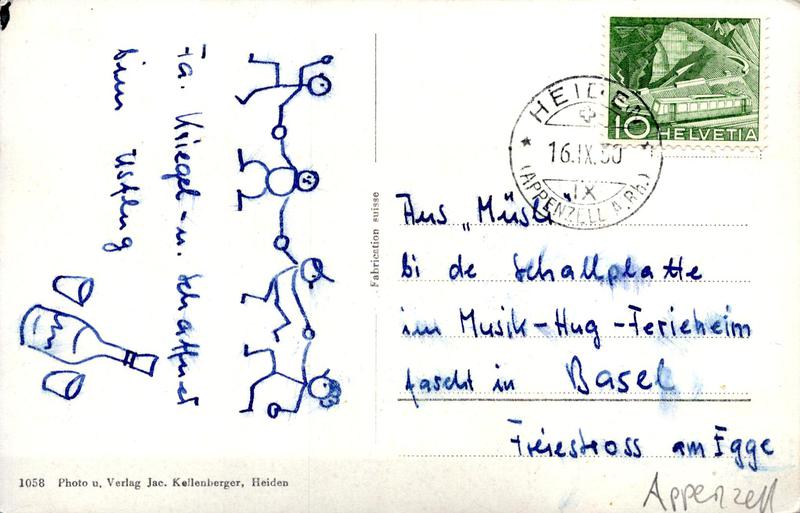 Fa. Kriegel- u. Schaffner
bim Usflug
HEIDEN
16.IX.50
IX
(APPENZELL A.Rh.)
10 HELVETIA
Fabrication suisse
Aus „Müsli"
bi de Schallplatte
im Musik-Hug-Ferieheim
fascht in Basel
Freiestross am Egge
1058 Photo u. Verlag Jac. Kellenberger, Heiden
Appenzell